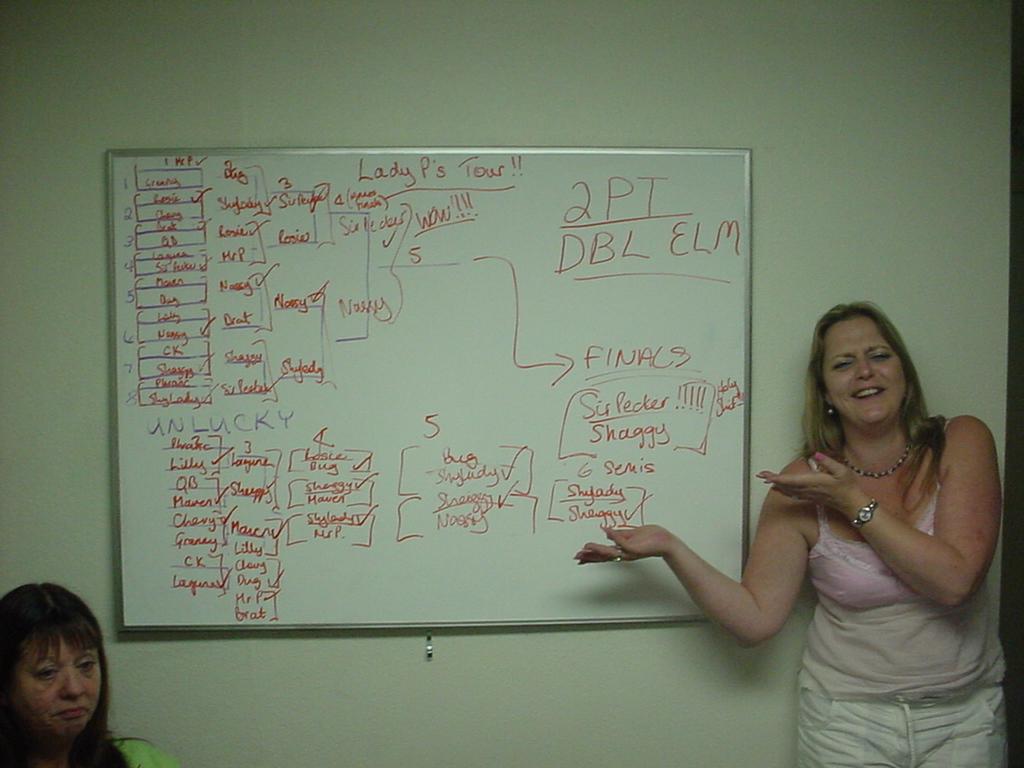 Lady P's Tour!!
1 MrP
1
Greaney
2
Rosie
Chevy
3
Brat
QB
4
Laguna
Sir Pecker
5
Maven
Bug
6
Lilly
Nassy
7
CK
Shaggy
8
Phratic
ShyLady
2
Bug
Shylady
Rosie
MrP
Nassy
Brat
Shaggy
Sir Pecker
3
Sir Pecker
Rosie
Nassy
Shylady
4
Sir Pecker
Nassy
WOW!!!!
5
2 PT
DBL ELM
FINALS
Sir Pecker !!!!!
Shaggy
6 semis
Shylady
Shaggy
UNLUCKY
Phratic
Lilly
QB
Maven
Chevy
Graney
CK
Laguna
3
Laguna
Shaggy
Maven
Lilly
Chevy
Bug
MrP
Brat
4
Rosie
Bug
Shaggy
Maven
Shylady
Mr P.
5
Bug
Shylady
Shaggy
Nassy